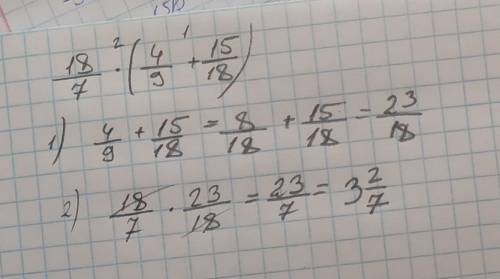 18/7 ·² (4/9 +¹ 15/18)
1) 4/9 + 15/18 = 8/18 + 15/18 = 23/18
2) 18/7 · 23/18 = 23/7 = 3 2/7